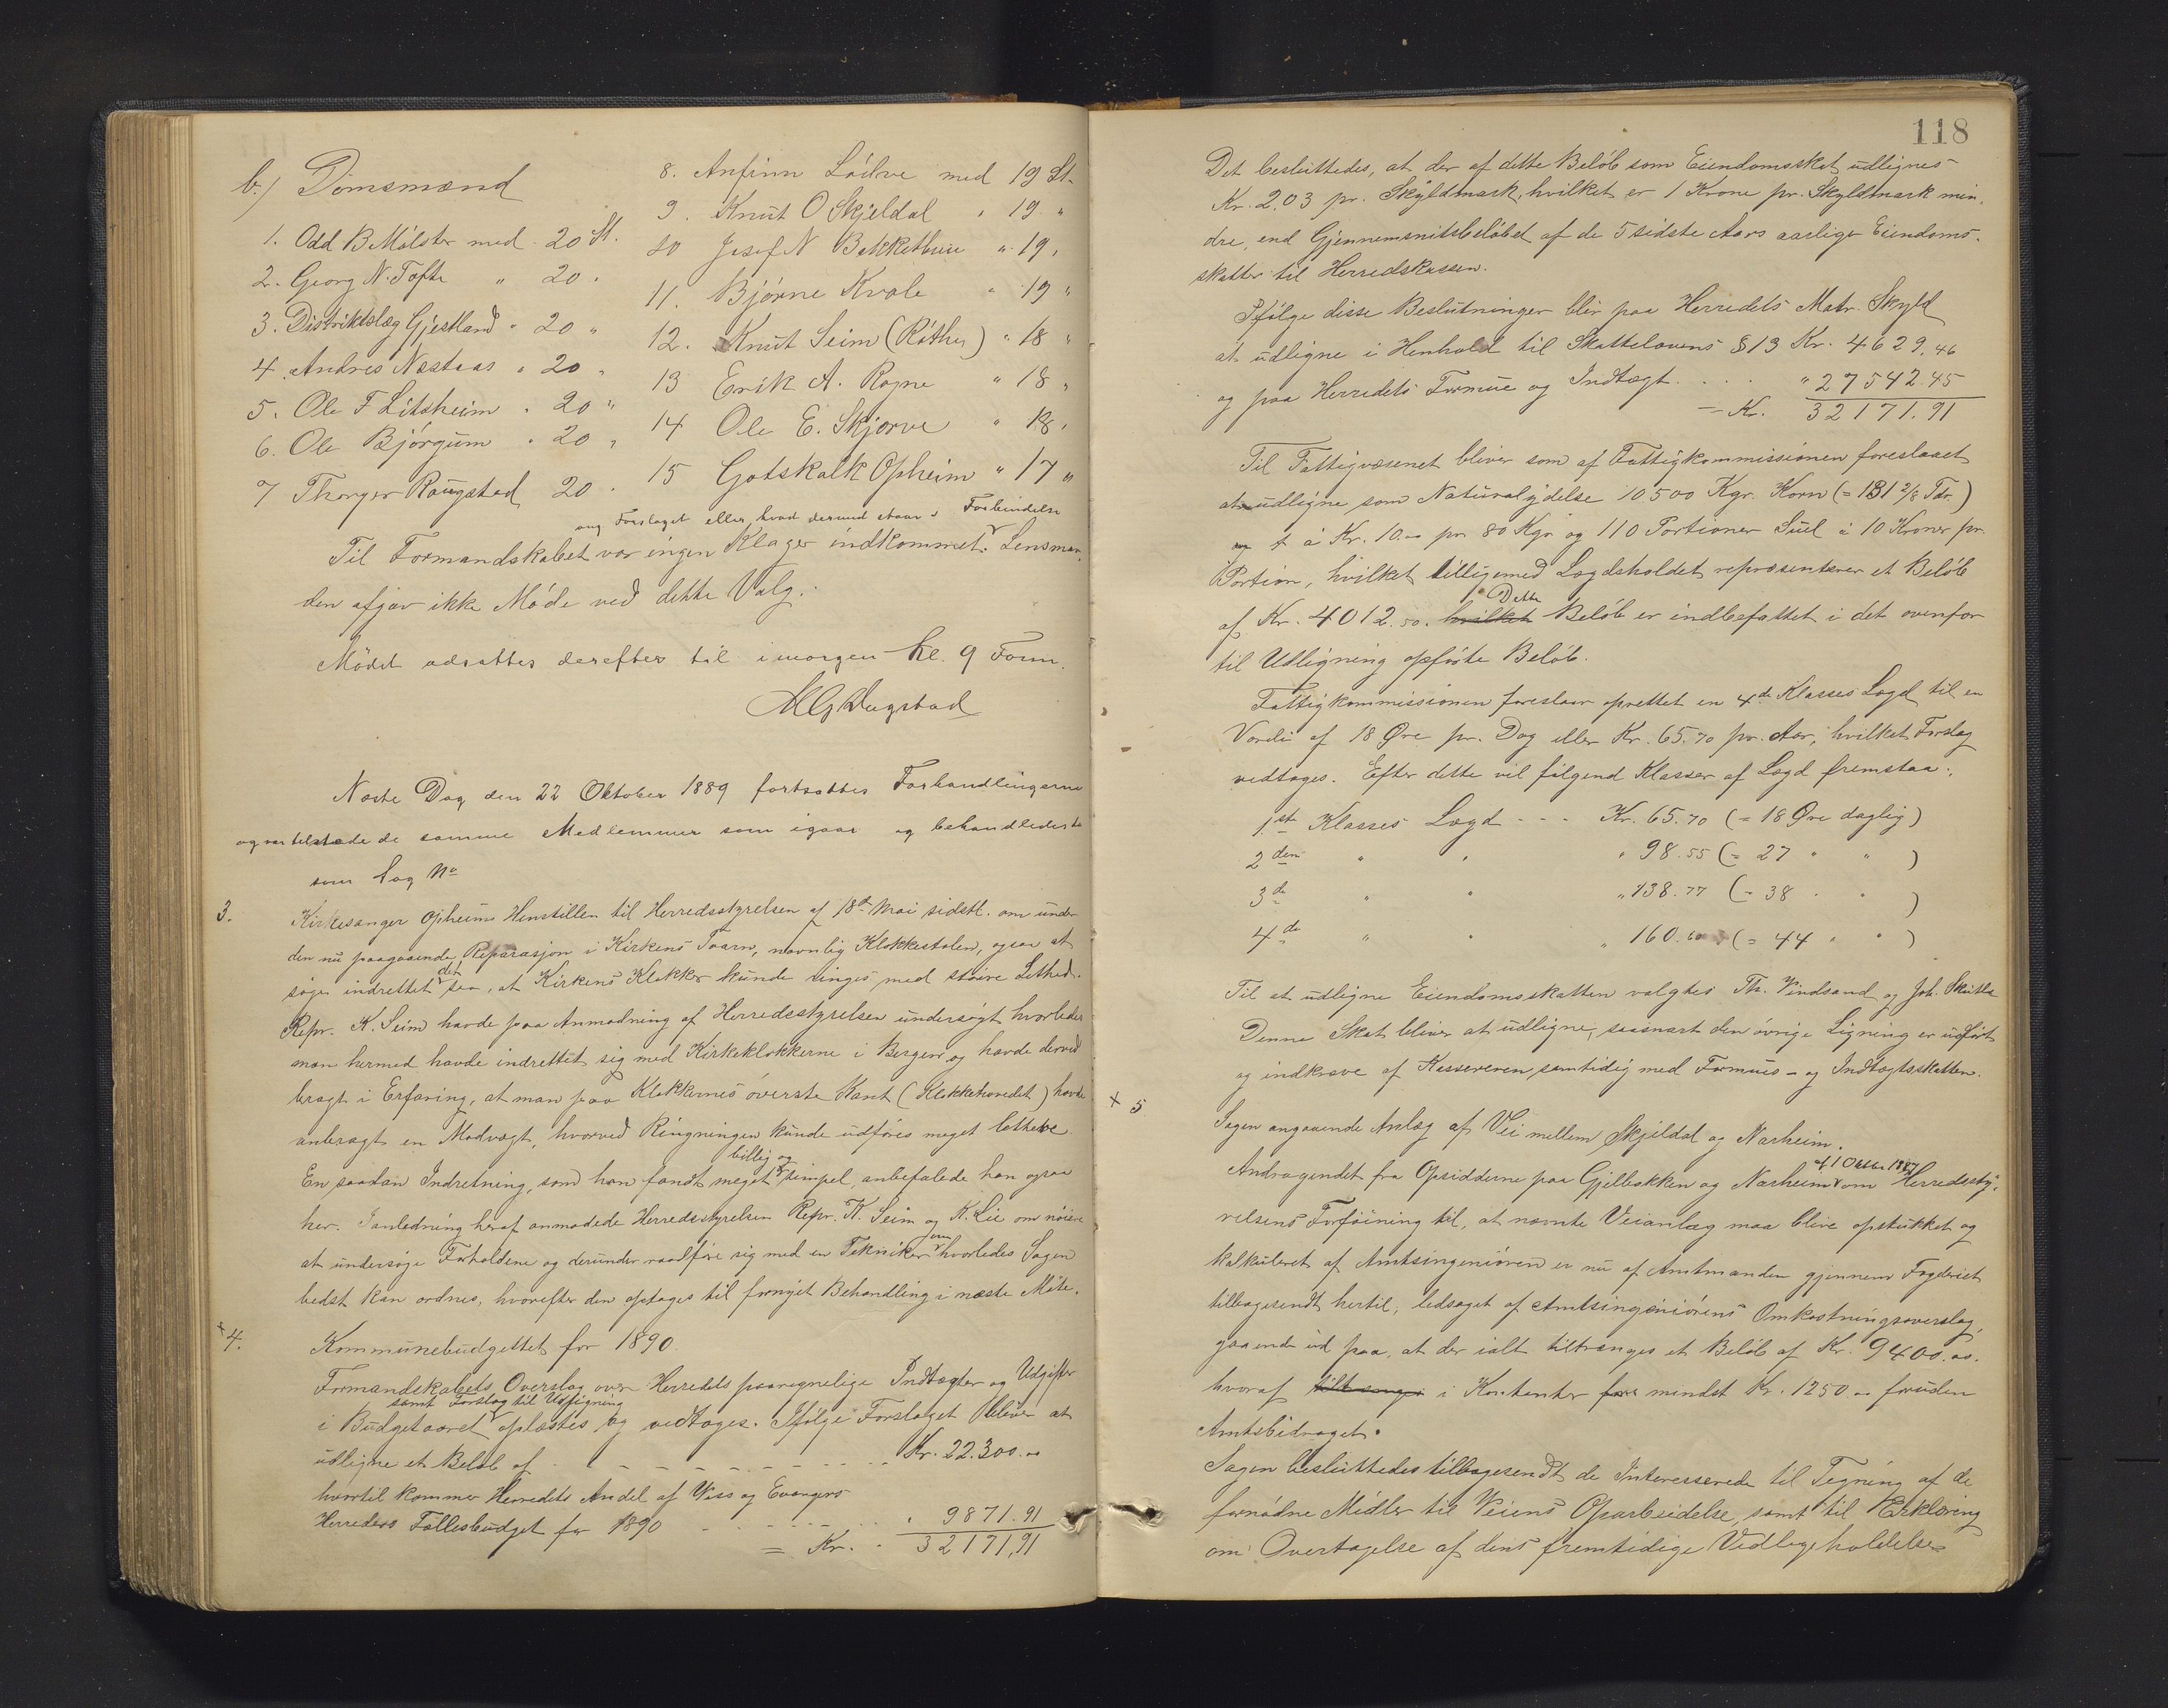 b.) Domsmænd
1. Odd B Mølster med 20 St.
2. Georg N. Tofte " 20 "
3. Distriktslæg Gjestland " 20 "
4. Andres Næstaas " 20 "
5. Ole F Litsheim " 20 "
6. Ole Bjørgum " 20 "
7 Thorger Raugstad 20 "
8. Anfinn Lødve med 19 St.
9. Knut O Skjeldal " 19 "
10 Josef N Bakkethun " 19 "
11. Bjørne Kvale " 19 "
12. Knut Seim (Røthe) " 18 "
13 Erik A. Rogne " 18 "
14 Ole E. Skjerve " 18 "
15 Gotskalk Opheim " 17 "
ang Forslaget eller hvad dermed staar i Forbindelse
Til Formandskabet var ingen Klager indkommet. Lensman-
den afgav ikke Møde ved dette Valg.
Mødet udsattes derefter til imorgen kl. 9 Form.
Dagstad
Næste Dag den 22 Oktober 1889 fortsattes Forhandlingerne
og var tilstæde de samme Medlemmer som igaar og behandledes da
som Sag No
3. Kirkesanger Opheims Henstillen til Herredsstyrelsen af 18de Mai sidstl. om under
den nu paagaaende Reparasjon i Kirkens Taarn, navnlig Klokkestolen, ogsaa at
søge indrettet det saa, at Kirkens Klokker kunde ringes med større Lethed.
Repr. K. Seim havde paa Anmodning af Herredsstyrelsen undersøgt hvorledes
man hermed havde indrettet sig med Kirkeklokkerne i Bergen og havde derved
bragt i Erfaring, at man paa Klokkernes øverste Kant (Klokkehovedet) havde
anbragt en Modvægt, hvorved Ringningen kunde udføres meget lettere.
billig og
En saadan Indretning, som han fandt meget simpel, anbefalede han ogsaa
her. I anledning heraf anmodede Herredsstyrelsen Repr. K. Seim og K. Lie om nøiere
at undersøge Forholdene og derunder raadføre sig med en Tekniker om hvorledes Sagen
bedst kan ordnes, hvorefter den optages til fornyet Behandling i næste Møte.
+ 4. Kommunebudgettet for 1890.
Formandskabets Overslag over Herredets paaregnelige Indtægter og Udgifter
samt Forslag til Udligning
i Budgetaaret oplæstes og vedtoges. Ifølge Forslaget bliver at
udligne et Beløb af - - - - - - - - Kr. 22.300.00
hvortil kommer Herredets Andel af Voss og Evangers
Herreders Fællesbudget for 1890 - - - - - " 9871.91
= Kr. " 32171,91
118
Det besluttedes, at der af dette Beløb som Eiendomsskat udlignes
Kr. 2,03 pr. Skyldmark, hvilket er 1 Krone pr. Skyldmark min-
dre, end Gjennemsnitsbeløbet af de 5 sidste Aars aarlige Eiendoms-
skatter til Herredskassen.
Ifølge disse Beslutninger blir paa Herredets Matr. Skyld
at udligne i Henhold til Skattelovens § 13 Kr. 4629,46
og paa Herredets Formue og Indtægt . . . . " 27542.45
= Kr. 32171.91
Til Fattigvæsenet bliver som af Fattigkommissionen foreslaaet
at udligne som Naturalydelse 10500 Kgr. Korn (= 131 2/8 Tdr.)
à Kr. 10.00 pr. 80 Kgr og 110 Portioner Suel à 10 Kroner pr.
Portion, hvilket tilligemed Lægdsholdet repræsenterer et Beløb
af Kr. 4012.50. hvilket Dette Beløb er indbefattet i det ovenfor
til Udligning opførte Beløb.
Fattigkommissionen foreslaar oprettet en 4de Klasses Lægd til en
Værdi af 18 Øre pr. Dag eller Kr. 65.70 pr. Aar, hvilket Forslag
vedtoges. Efter dette vil følgend Klasser af Lægd fremstaa:
1ste Klasses Lægd - - - Kr. 65.70 (= 18 Øre daglig)
2den " " " 98.55 (= 27 " " )
3de " " " 138.77 (= 38 " " )
4de " " " 160.60 (= 44 " " )
Til at udligne Eiendomsskatten valgtes Th. Vindsand og Joh. Skutle
Denne Skat bliver at udligne, saasnart den øvrige Ligning er udført
og indkræve af Kassereren samtidig med Formues- og Indtægtsskatten.
+ 5 Sagen angaaende Anlæg af Vei mellem Skjeldal og Nærheim.
af 1 Oktbr. 1887
Andragendet fra Opsidderne paa Gjelbakken og Nærheim om Herredssty-
relsens Forføining til, at nævnte Veianlæg maa blive opstukket og
kalkuleret af Amtsingeniøren er nu af Amtmanden gjennem Fogderiet
tilbagesendt hertil, ledsaget af Amtsingeniørens Omkostningsoverslag,
gaaende ud paa, at der ialt tiltrænges et Beløb af Kr. 9400.00.
hvoraf i Kontanter mindst Kr. 1250.00 foruden
Amtsbidraget.
Sagen besluttedes tilbagesendt de Interesserede til Tegning af de
fornødne Midler til Veiens Oparbeidelse, samt til Erklæring
om Overtagelse af dens fremtidige Vedligeholdelse